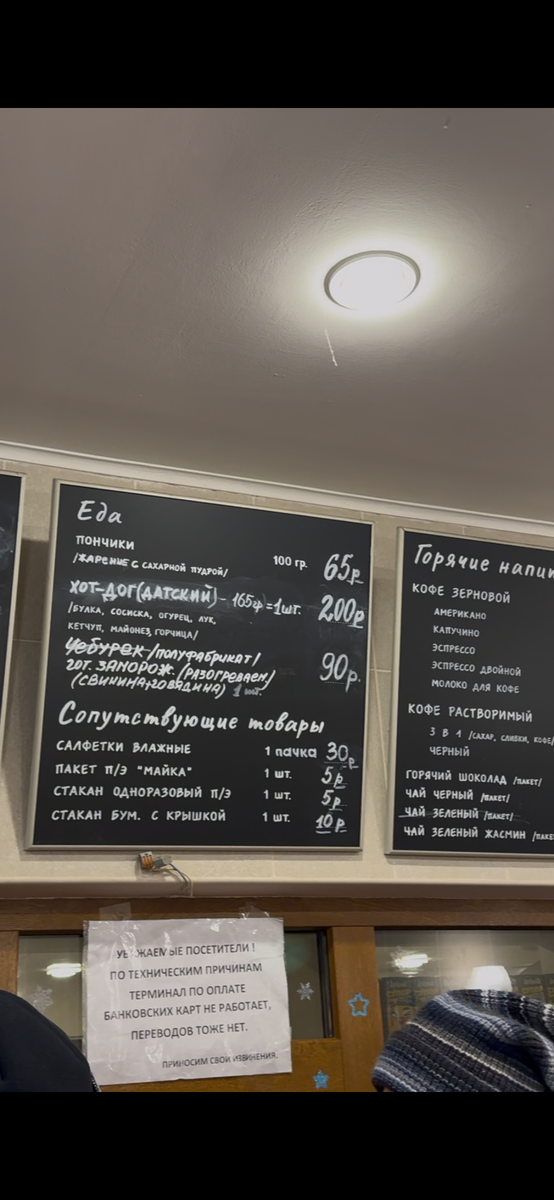 Еда
ПОНЧИКИ
/ЖАРЕНИЕ С САХАРНОЙ ПУДРОЙ/ 100 гр. 65р
ХОТ-ДОГ(ДАТСКИЙ) - 165гр=1шт. 200р
/БУЛКА, СОСИСКА, ОГУРЕЦ, ЛУК,
КЕТЧУП, МАЙОНЕЗ, ГОРЧИЦА/
Чебурек /ПОЛУФАБРИКАТ/
ГОТ. ЗАМОРОЖ. /РАЗОГРЕВАЕМ/ 90р.
(СВИНИНА+ГОВЯДИНА) 1 шт.
Сопутствующие товары
САЛФЕТКИ ВЛАЖНЫЕ 1 пачка 30р
ПАКЕТ П/Э "МАЙКА" 1 шт. 5р
СТАКАН ОДНОРАЗОВЫЙ П/Э 1 шт. 5р
СТАКАН БУМ. С КРЫШКОЙ 1 шт. 10р
Горячие напит
КОФЕ ЗЕРНОВОЙ
АМЕРИКАНО
КАПУЧИНО
ЭСПРЕССО
ЭСПРЕССО ДВОЙНОЙ
МОЛОКО ДЛЯ КОФЕ
КОФЕ РАСТВОРИМЫЙ
3 В 1 /САХАР, СЛИВКИ, КОФЕ/
ЧЕРНЫЙ
ГОРЯЧИЙ ШОКОЛАД /ПАКЕТ/
ЧАЙ ЧЕРНЫЙ /ПАКЕТ/
ЧАЙ ЗЕЛЕНЫЙ /ПАКЕТ/
ЧАЙ ЗЕЛЕНЫЙ ЖАСМИН /ПАКЕ
УВАЖАЕМЫЕ ПОСЕТИТЕЛИ !
ПО ТЕХНИЧЕСКИМ ПРИЧИНАМ
ТЕРМИНАЛ ПО ОПЛАТЕ
БАНКОВСКИХ КАРТ НЕ РАБОТАЕТ,
ПЕРЕВОДОВ ТОЖЕ НЕТ.
ПРИНОСИМ СВОИ ИЗВИНЕНИЯ.